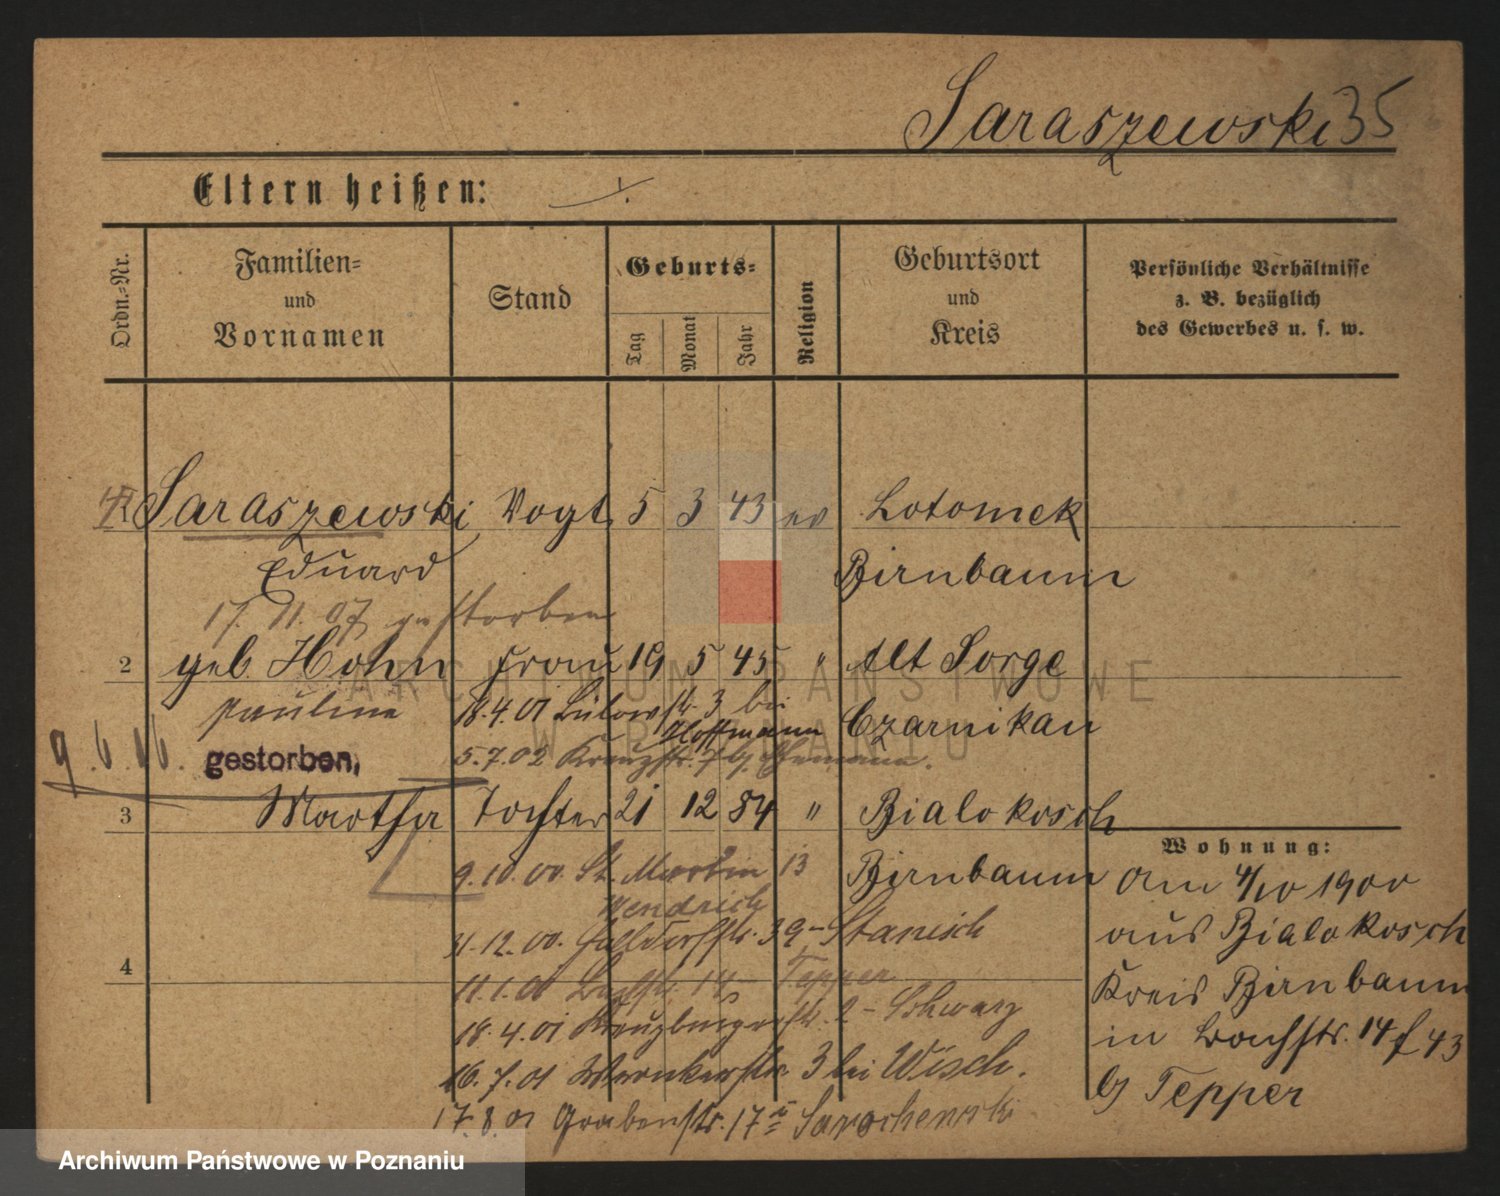 Saraszewski 35
Eltern heißen: ./.
Ordn.-Nr.
Familien-
und
Vornamen
Stand
Geburts-
Tag
Monat
Jahr
Religion
Geburtsort
und
Kreis
Persönliche Verhältnisse
z. B. bezüglich
des Gewerbes u. s. w.
Saraszewski Vogt 5 3 43 ev Lotomek
Eduard Birnbaum
17. 11. 07 gestorben
2 geb. Hohn Frau 19 5 45 " Alt Sorge
Pauline 18.4.01 Bülowstr. 3 bei
Hoffmann Czarnikau
9.6.16. gestorben, 5.7.02 Kreuzstr. 7 bj.
3 Martha Tochter 21 12 84 " Bialokosch
Birnbaum
9.10.00. St. Martin 13
Wendrich
11.12.00. 39 - Stanisch
4
11.1.01 14 Tepper
18.4.01 Kreuzburgerstr. 2 - Schwarz
16.7.01 3 bei Wisch.
17.8.01 Grabenstr. 17
Wohnung:
Am 4/10 1900
aus Bialokosch
Kreis Birnbaum
in Bachstr. 14 f 43
bj Tepper
ARCHIWUM PAŃSTWOWE
W POZNANIU
Archiwum Państwowe w Poznaniu